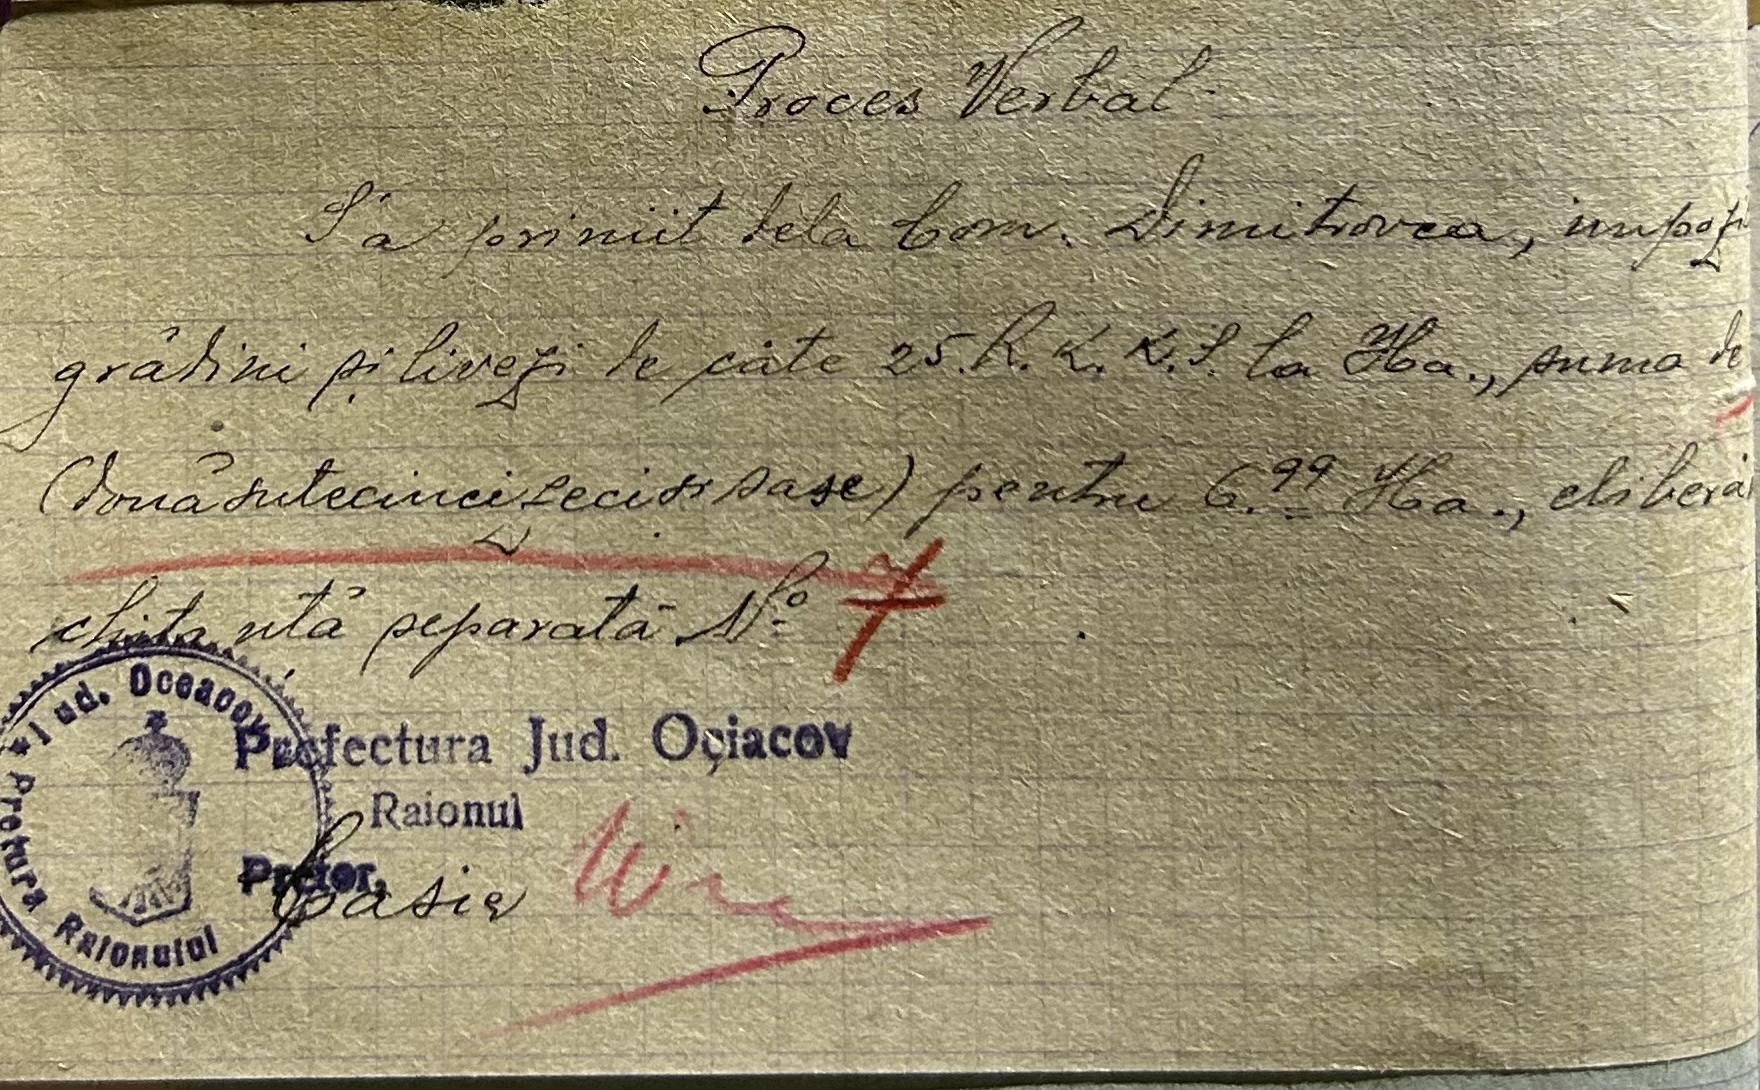 Proces Verbal
S'a primit dela Com. Dimitrovca, impozi
grădini și livezi de câte 25. R. K. K. S. la Ha., suma de
(două sutecincizeci și șase) pentru 6.99 Ha., eliberâ
chitanță separată No 7
Jud. Oceacov
Pretura Raionului
Prefectura Jud. Oçiacov
Raionul
Pretor,
Casier